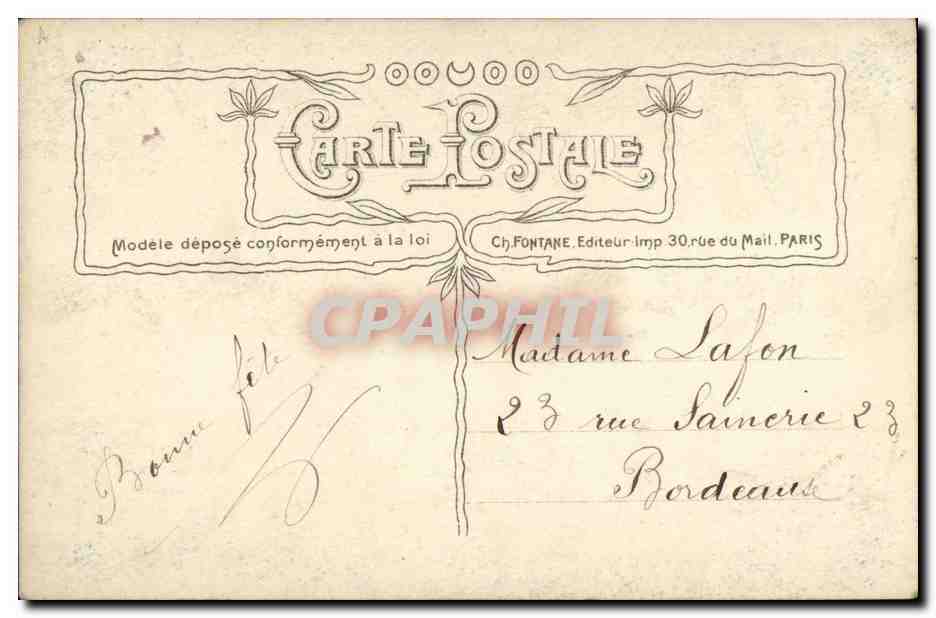 CARTE POSTALE
Modèle déposé conformément à la loi
Ch. FONTANE, Editeur-Imp 30, rue du Mail. PARIS
CPAPHIL
Bonne fête
Madame Lafon
23 rue Sainerie 23
Bordeaux